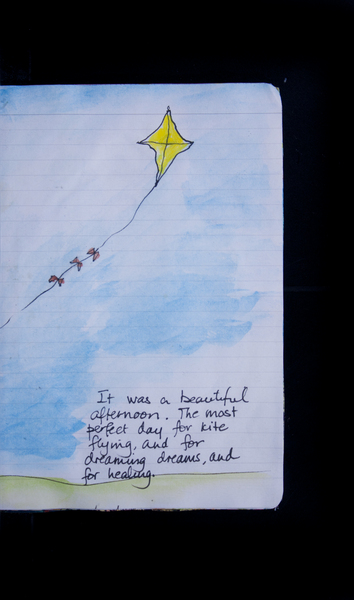 It was a beautiful
afternoon. The most
perfect day for kite
flying, and for
dreaming dreams, and
for healing.